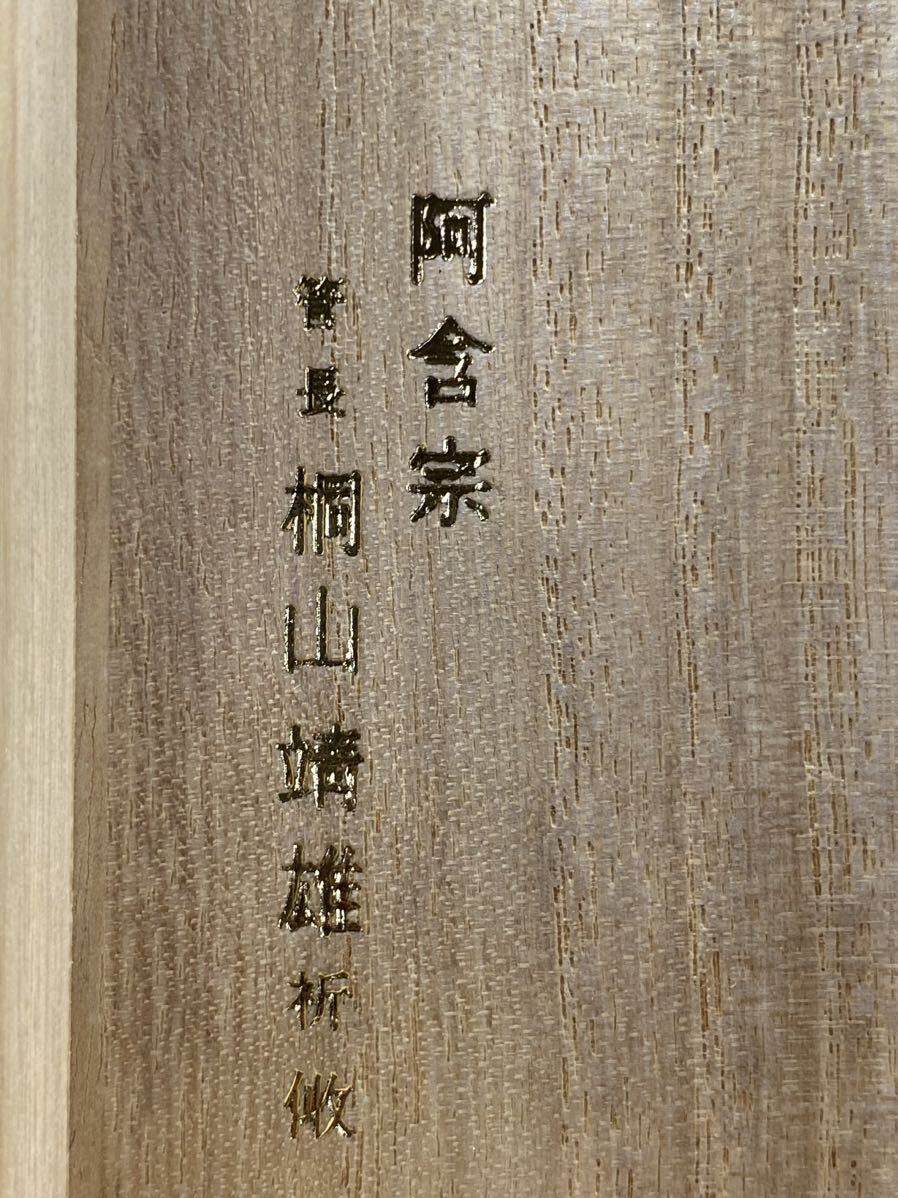 阿含宗
管長 桐山靖雄 祈